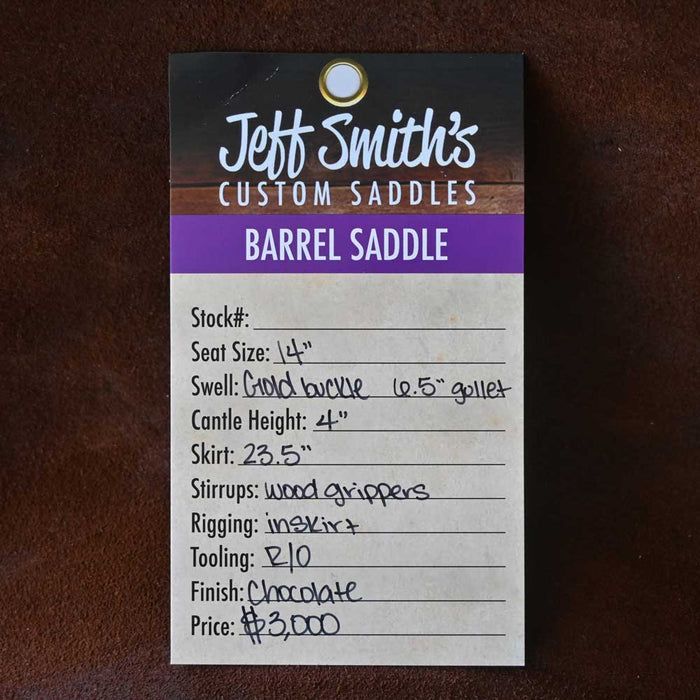 Jeff Smith's
CUSTOM SADDLES
BARREL SADDLE
Stock#:
Seat Size: 14"
Swell: Gold buckle 6.5" gullet
Cantle Height: 4"
Skirt: 23.5"
Stirrups: wood grippers
Rigging: inskirt
Tooling: R/O
Finish: Chocolate
Price: $3,000